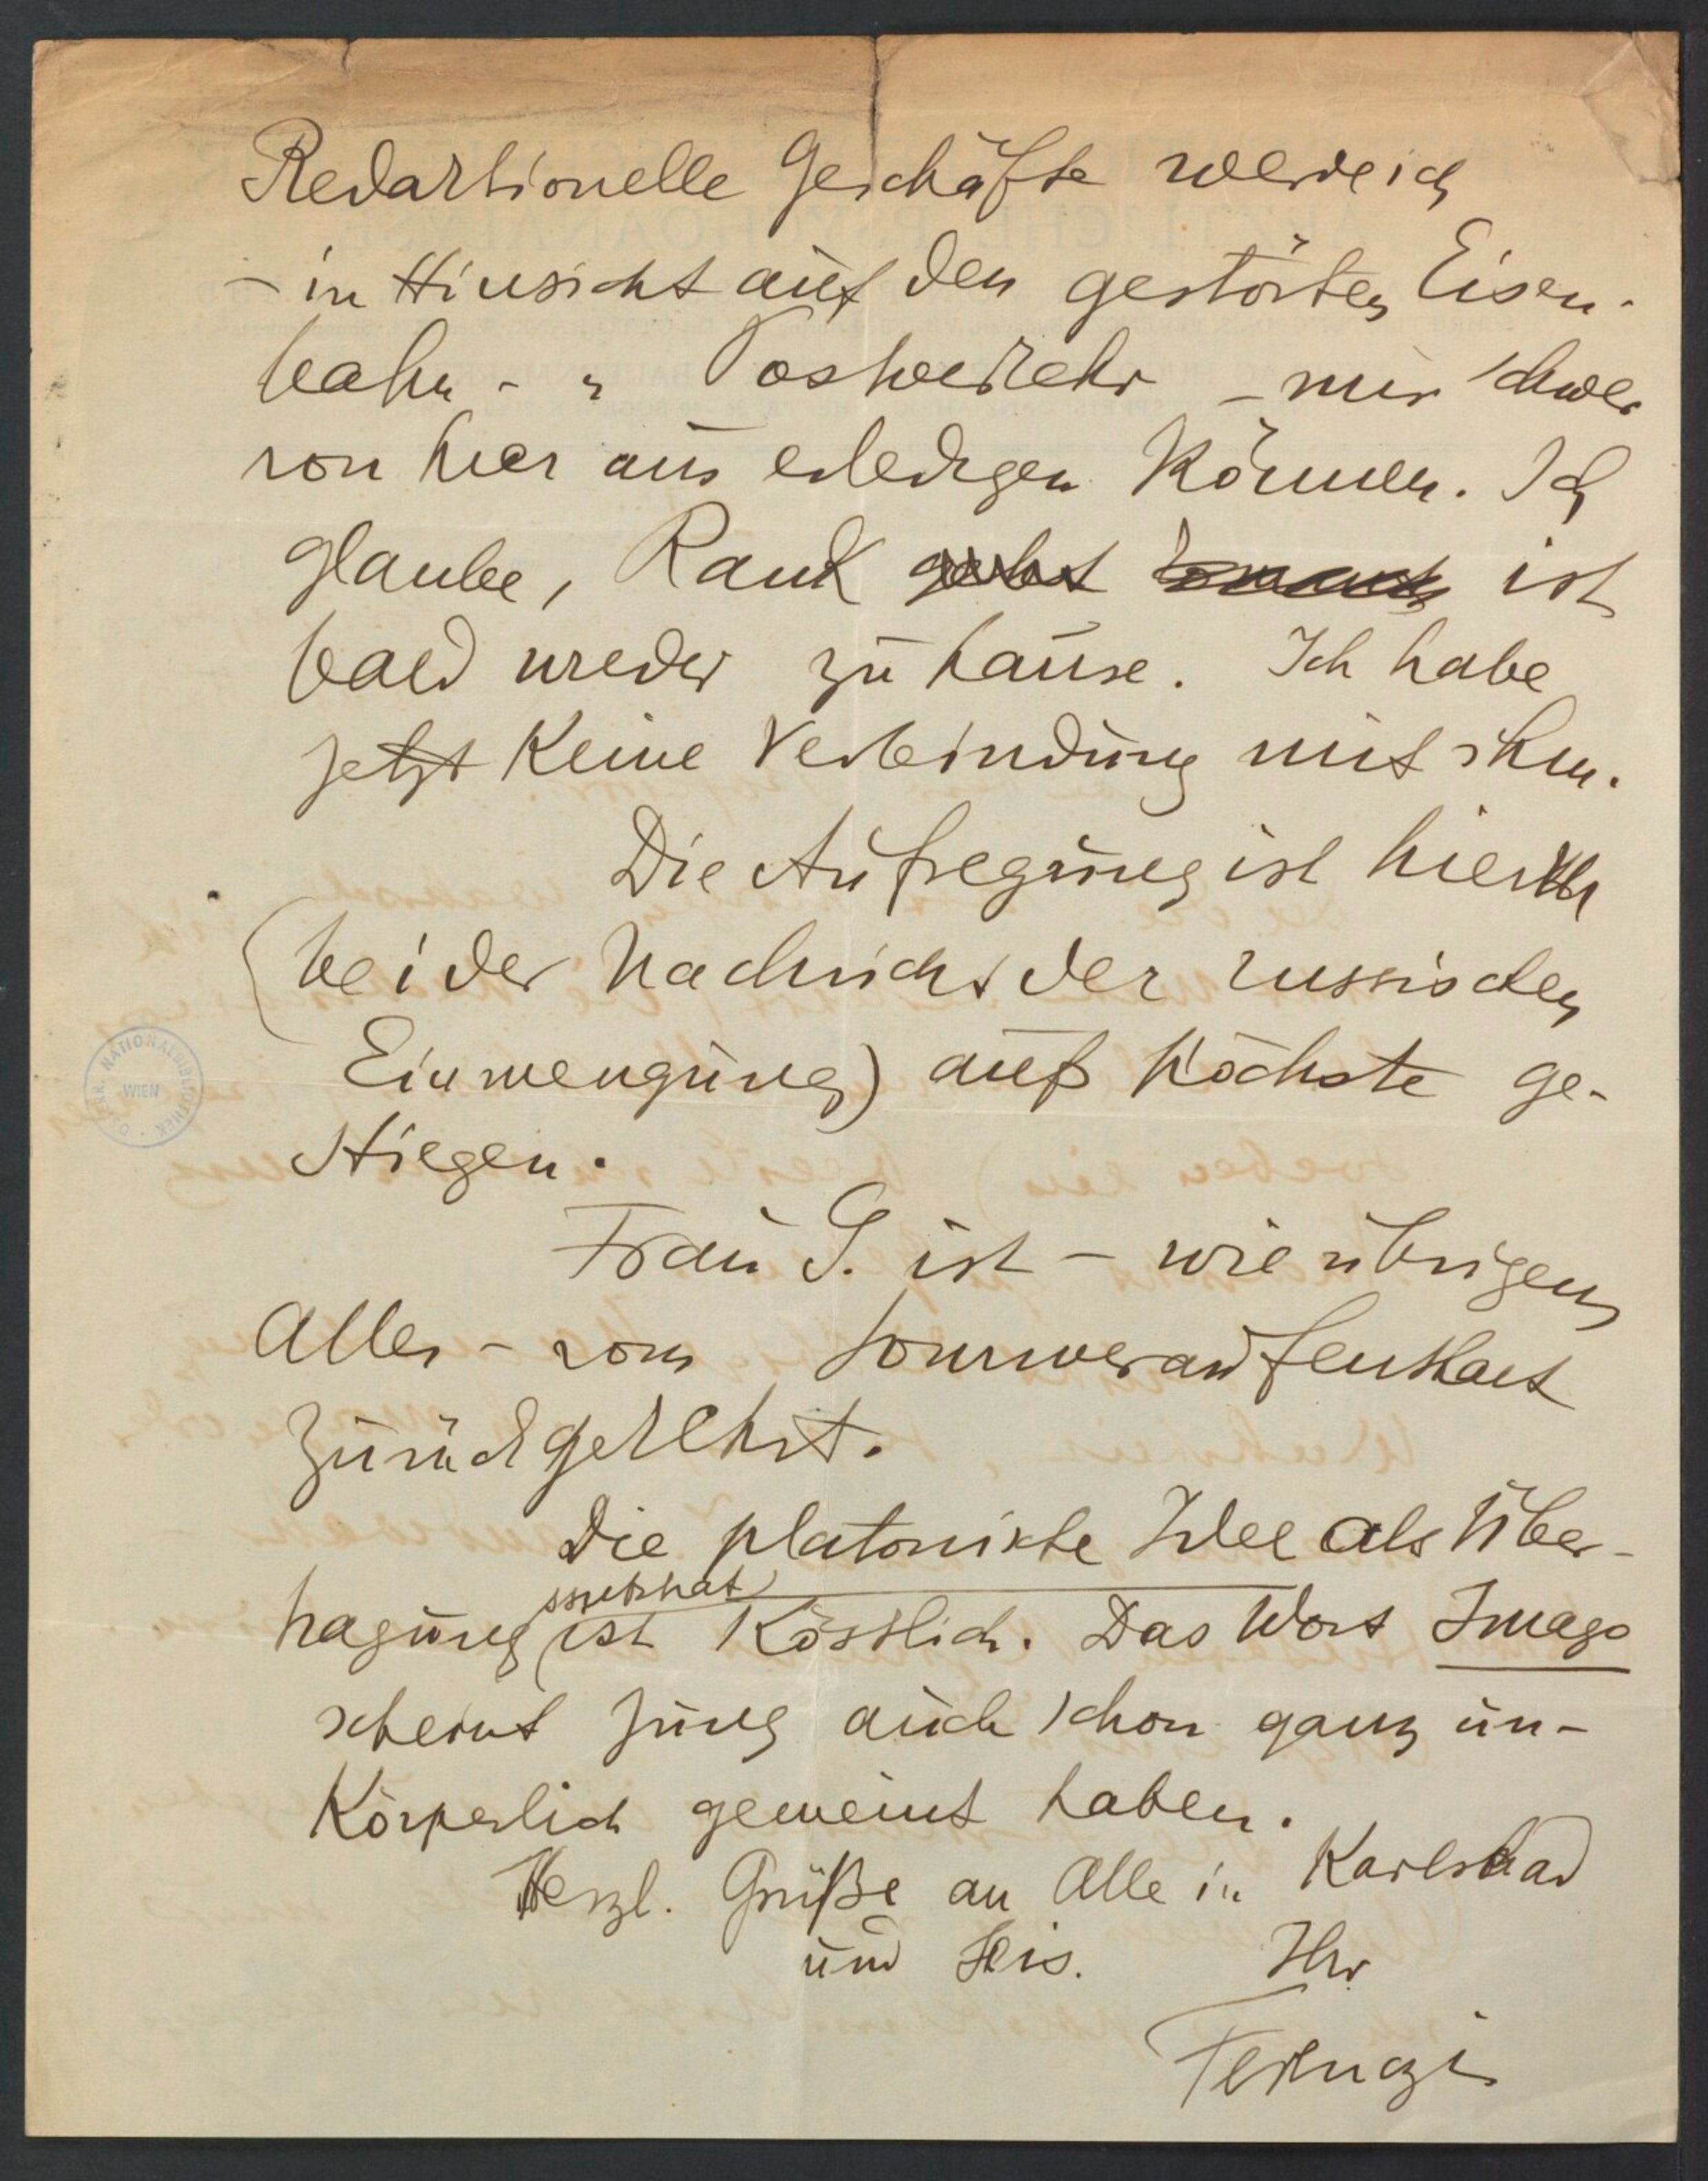 Redaktionelle Geschäfte werde ich
– in Hinsicht auf den gestörten Eisen-
bahn- u Postverkehr – nur schwer
von hier aus erledigen können. Ich
glaube, Rank ist
bald wieder zu hause. Ich habe
jetzt keine Verbindung mit ihm.
Die Aufregung ist hier
(bei der Nachricht der russischen
Einmengung) aufs höchste ge-
stiegen.
Frau G. ist – wie übrigens
Alles – vom Sommeraufenthalt
zurückgekehrt.
Die platonische Idee als Über-
tragungs
ist köstlich. Das Wort Imago
scheint Jung auch schon ganz un-
körperlich gemeint haben.
Herzl. Grüße an Alle in Karlsbad
und Sis. Ihr
Ferenczi
ÖSTERR. NATIONALBIBLIOTHEK
WIEN